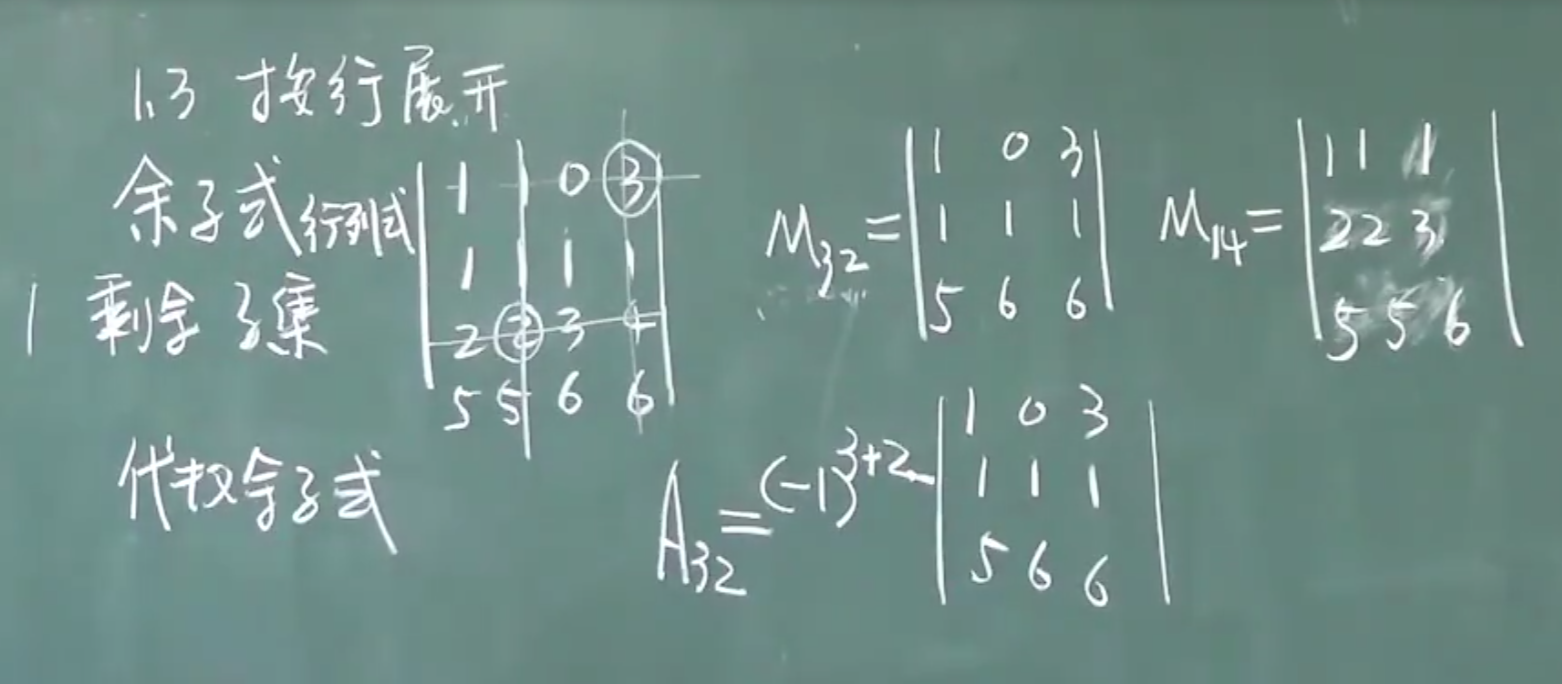 1.3 按行展开
余子式 行列式
1 1 0 3
1 1 1 1
2 2 3 4
5 5 6 6
剩余子集
M32 =
1 0 3
1 1 1
5 6 6
M14 =
1 1 1
2 2 3
5 5 6
代数余子式
A32 = (-1)^3+2
1 0 3
1 1 1
5 6 6